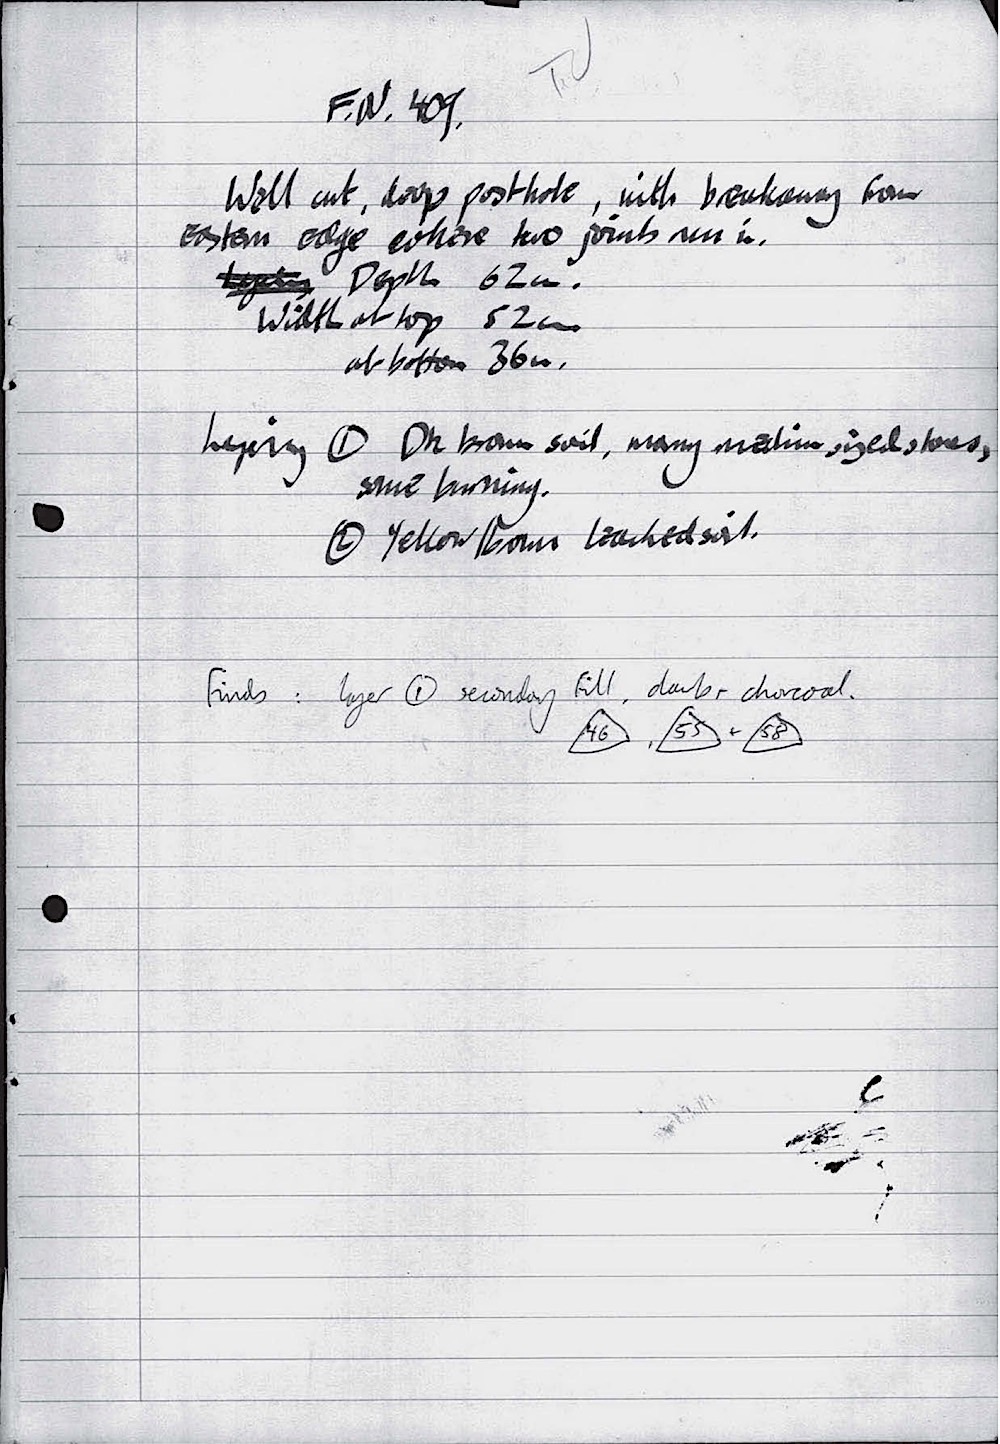 F.N. 409.
Well cut, deep posthole, with breakaway from
eastern edge where two joints run in.
Depth 62cm.
Width at top 52cm
at bottom 36cm.
Layering ① Dk brown soil, many medium sized stones,
some burning.
② Yellow/Brown leached soil.
Finds : layer ① secondary fill, daub + charcoal.
46, 55 + 58